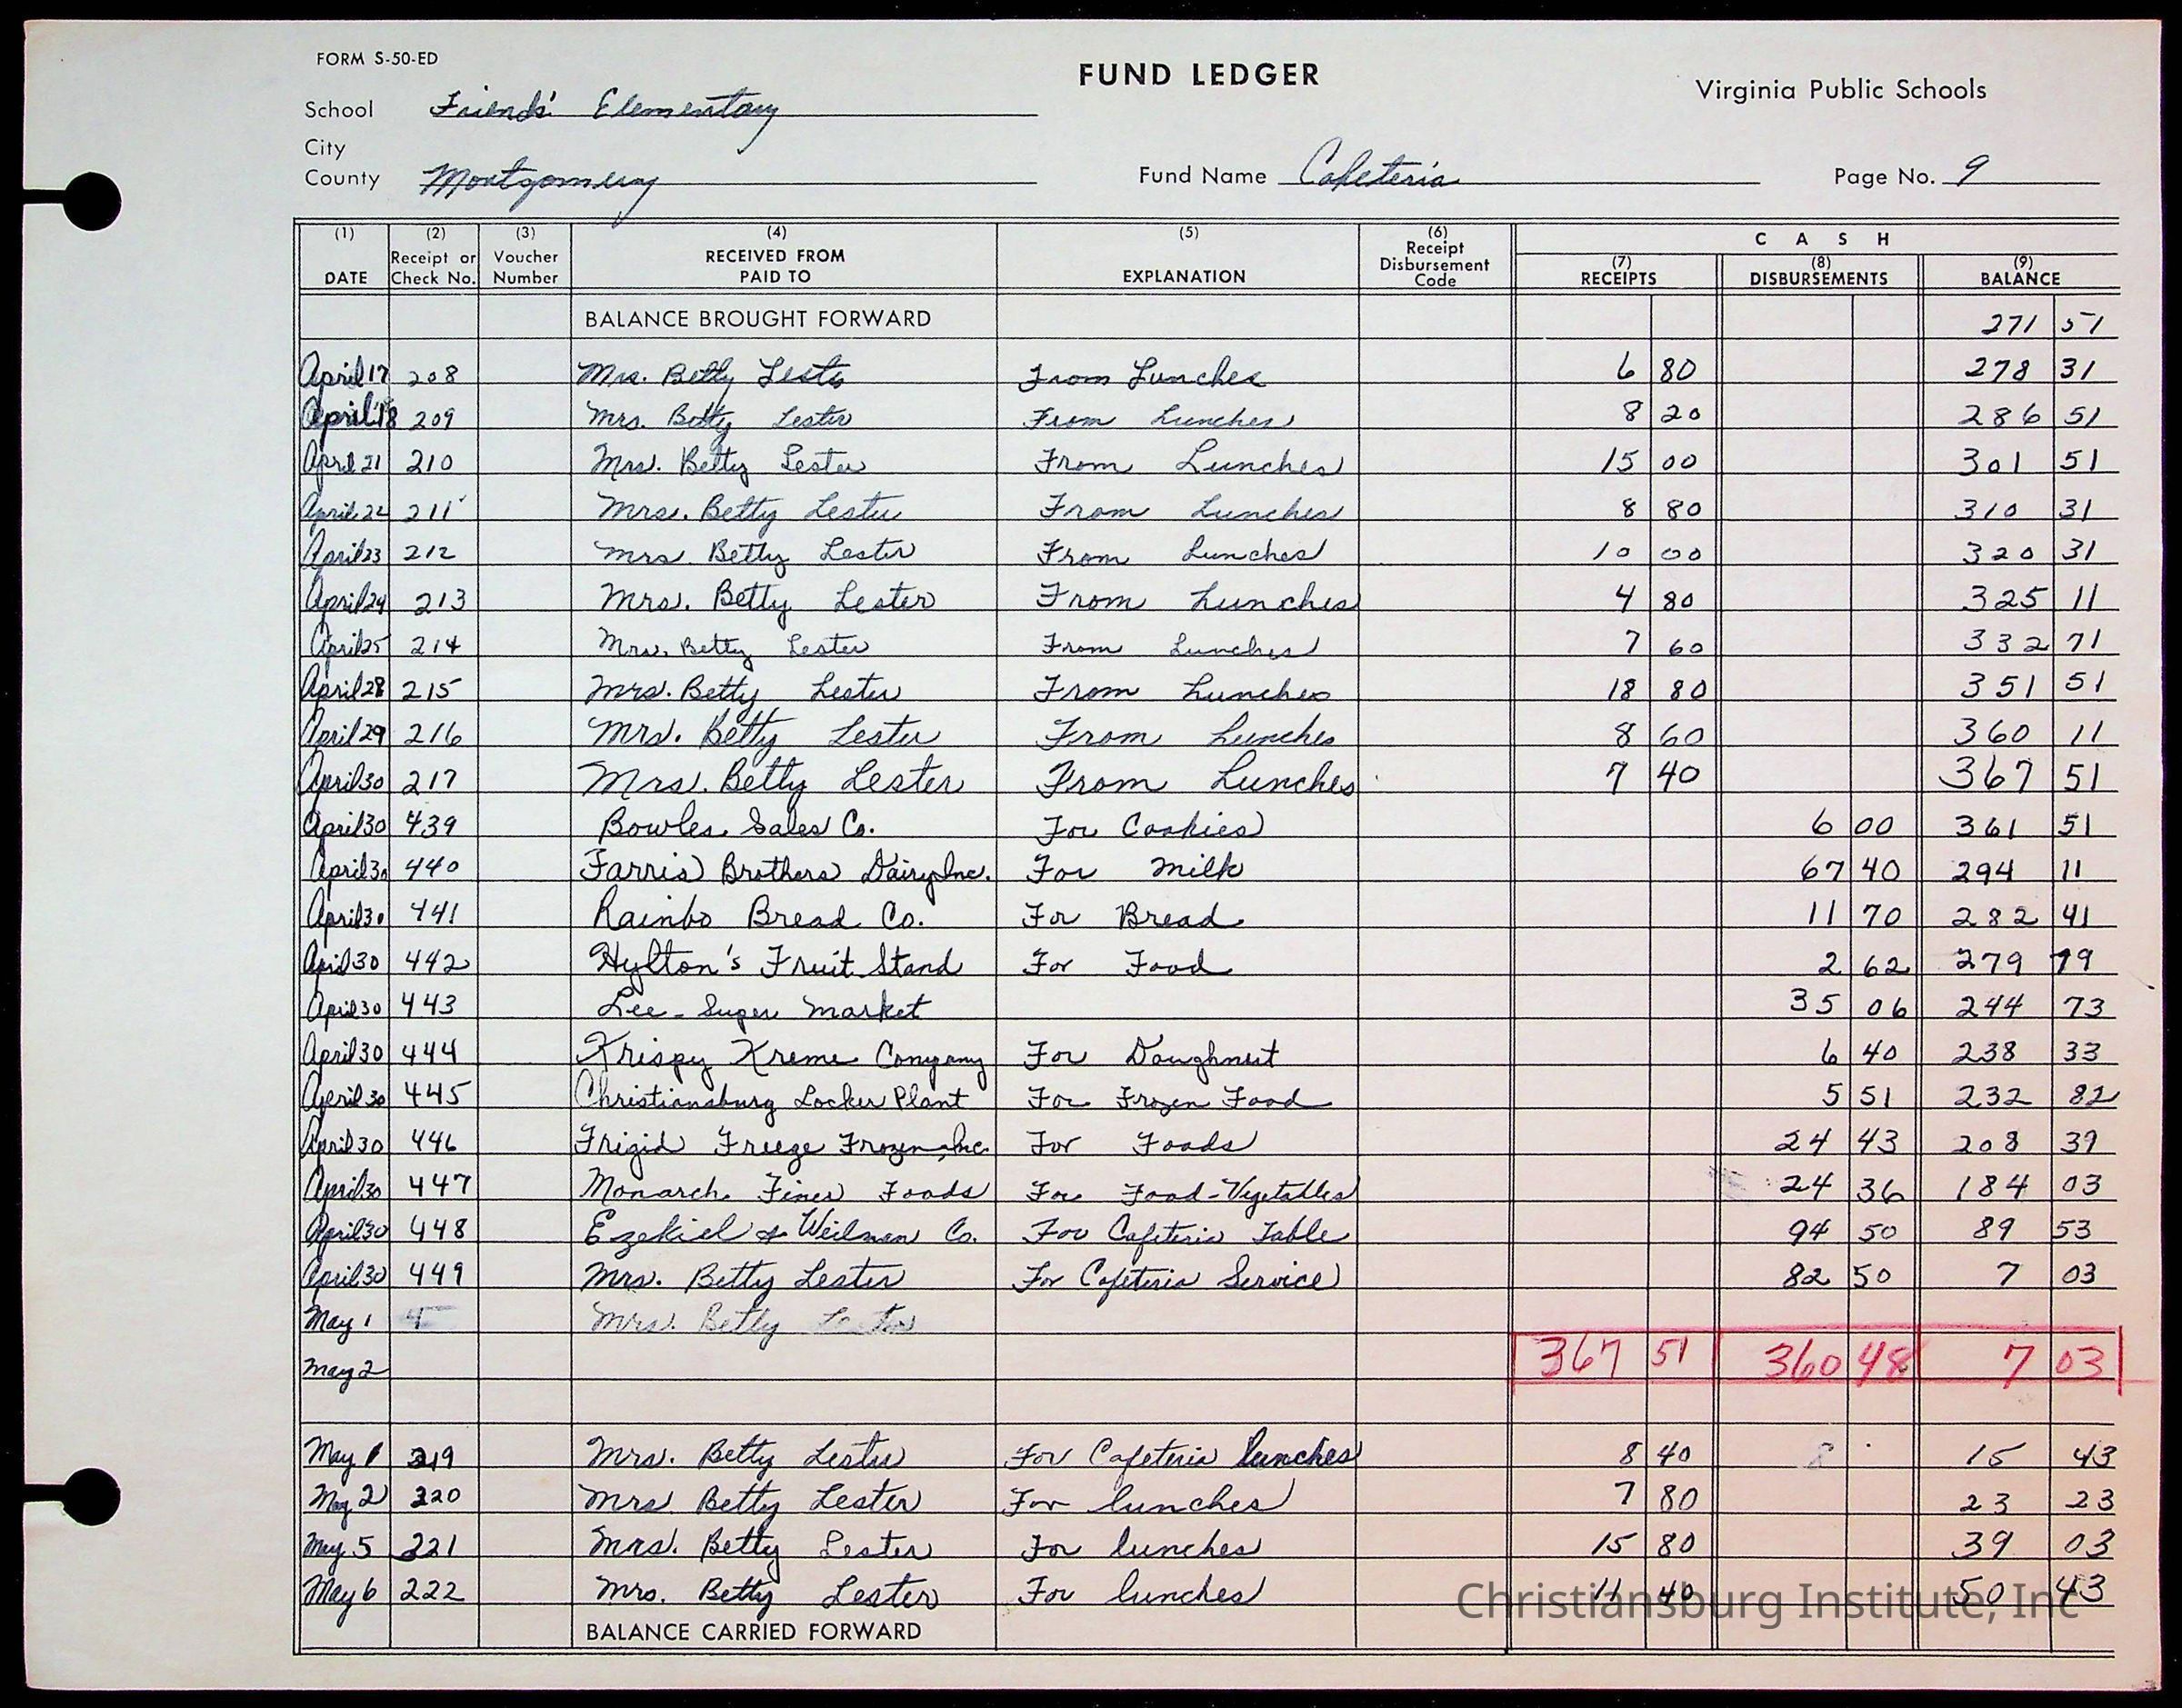 FORM S-50-ED
FUND LEDGER
Virginia Public Schools
School Friends' Elementary
City
County Montgomery
Fund Name Cafeteria
Page No. 9
(1) DATE (2) Receipt or Check No. (3) Voucher Number (4) RECEIVED FROM PAID TO (5) EXPLANATION (6) Receipt Disbursement Code CASH (7) RECEIPTS (8) DISBURSEMENTS (9) BALANCE
BALANCE BROUGHT FORWARD 271 51
April 17 208 Mrs. Betty Lester From Lunches 6 80 278 31
April 18 209 Mrs. Betty Lester From Lunches 8 20 286 51
April 21 210 Mrs. Betty Lester From Lunches 15 00 301 51
April 22 211 Mrs. Betty Lester From Lunches 8 80 310 31
April 23 212 Mrs. Betty Lester From Lunches 10 00 320 31
April 24 213 Mrs. Betty Lester From Lunches 4 80 325 11
April 25 214 Mrs. Betty Lester From Lunches 7 60 332 71
April 28 215 Mrs. Betty Lester From Lunches 18 80 351 51
April 29 216 Mrs. Betty Lester From Lunches 8 60 360 11
April 30 217 Mrs. Betty Lester From Lunches 7 40 367 51
April 30 439 Bowles Sales Co. For Cookies 6 00 361 51
April 30 440 Farris Brothers Dairy Inc. For Milk 67 40 294 11
April 30 441 Rainbo Bread Co. For Bread 11 70 282 41
April 30 442 Hylton's Fruit Stand For Food 2 62 279 79
April 30 443 Lee-Super Market 35 06 244 73
April 30 444 Krispy Kreme Company For Doughnut 6 40 238 33
April 30 445 Christiansburg Locker Plant For Frozen Food 5 51 232 82
April 30 446 Frigid Freeze Frozen, Inc. For Foods 24 43 208 39
April 30 447 Monarch Finer Foods For Food-Vegetables 24 36 184 03
April 30 448 Ezekiel & Weilman Co. For Cafeteria Table 94 50 89 53
April 30 449 Mrs. Betty Lester For Cafeteria Service 82 50 7 03
May 1 4 Mrs. Betty Lester
May 2 367 51 360 48 7 03
May 1 219 Mrs. Betty Lester For Cafeteria lunches 8 40 8 15 43
May 2 220 Mrs. Betty Lester For lunches 7 80 23 23
May 5 221 Mrs. Betty Lester For lunches 15 80 39 03
May 6 222 Mrs. Betty Lester For lunches 11 40 50 43
BALANCE CARRIED FORWARD
Christiansburg Institute, Inc